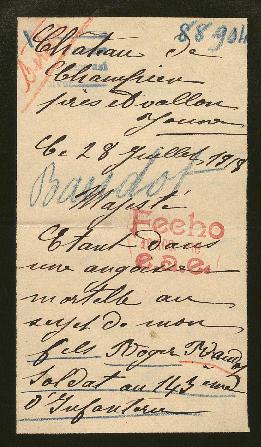 88904
Château de
Champien
près d'Avallon
Yonne
Ce 28 Juillet 1918
Baudot
Majesté
Fecho
e.d.e.
Etant dans
une angoisse
mortelle au
sujet de mon
fils Roger Baudot
soldat au 145 ème
d'Infanterie